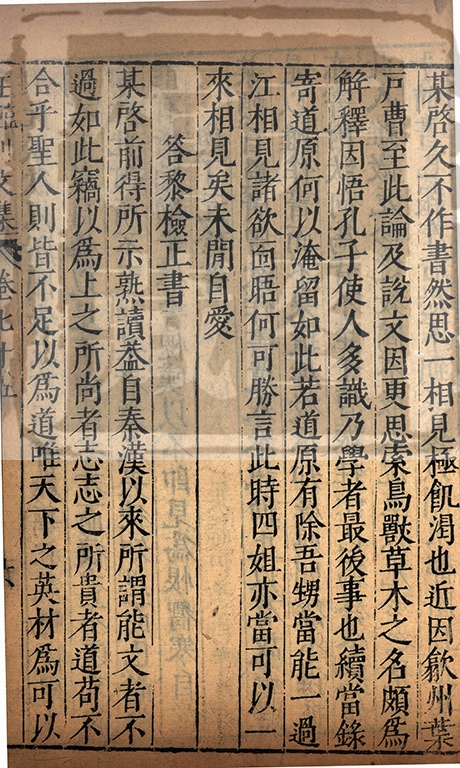 某啓久不作書然思一相見極飢渴也近因歙州葉
戸曹至此論及說文因更思索鳥獸草木之名頗爲
解釋因悟孔子使人多識乃學者最後事也續當錄
寄道原何以淹留如此若道原有除吾甥當能一過
江相見諸欲靣晤何可勝言此時四姐亦當可以一
來相見矣未閒自愛
答黎檢正書
某啓前得所示熟讀葢自秦漢以來所謂能文者不
過如此竊以爲上之所尚者志志之所貴者道苟不
合乎聖人則皆不足以爲道唯天下之英材爲可以
王臨川文集 卷七十五